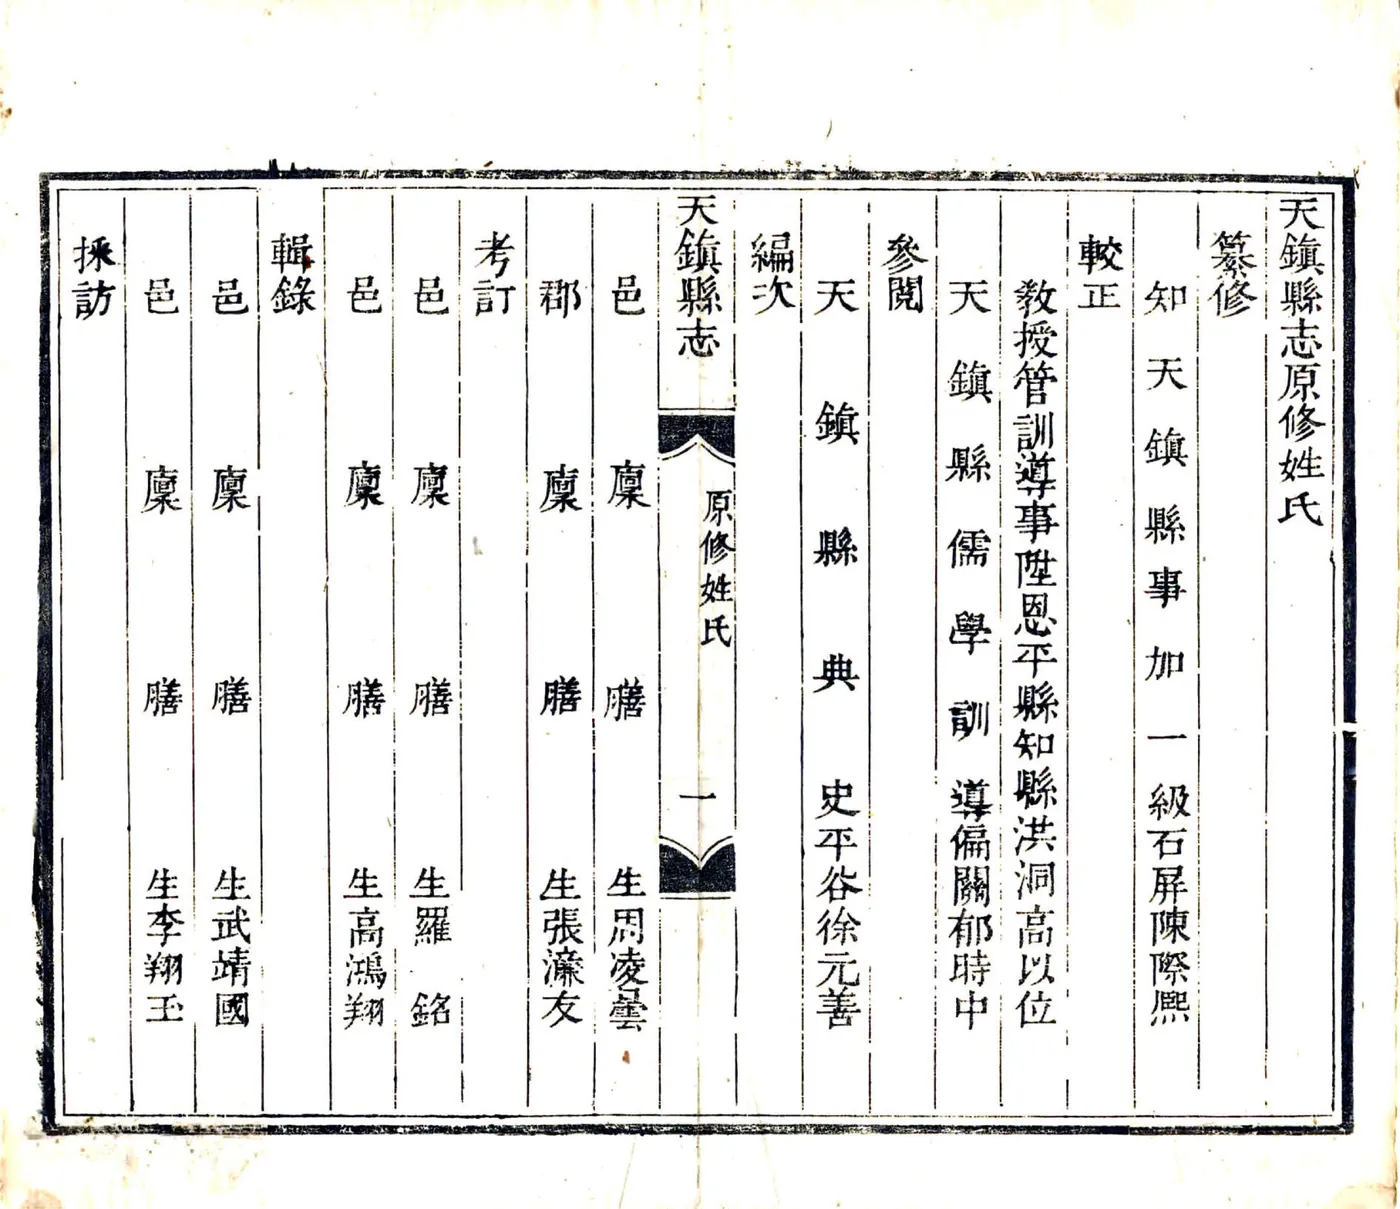 天鎮縣志原修姓氏
纂修
知天鎮縣事加一級石屏陳際熙
較正
教授管訓導事陞恩平縣知縣洪洞高以位
天鎮縣儒學訓導偏關郁時中
參閱
天鎮縣典史平谷徐元善
編次
天鎮縣志
原修姓氏
一
邑廩膳生周凌曇
郡廩膳生張濂友
考訂
邑廩膳生羅銘
邑廩膳生高鴻翔
輯錄
邑廩膳生武靖國
邑廩膳生李翔玉
採訪